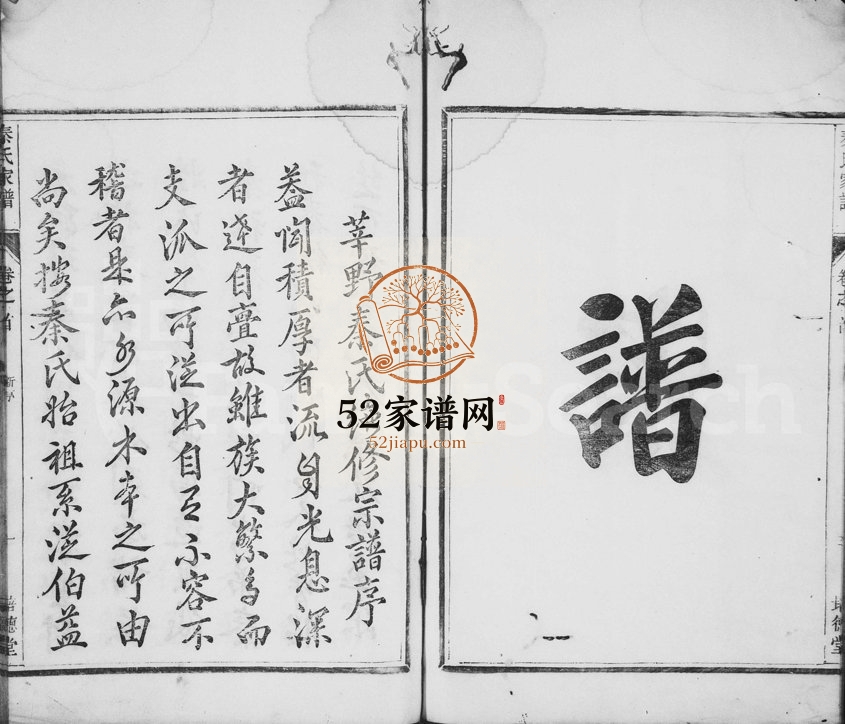 譜
莘野秦氏修宗譜序
蓋聞積厚者流自光息深
者逹自亹故雖族大繁多而
支派之所從出自有不容不
稽者是亦水源木本之所由
尚矣按秦氏始祖系從伯益
秦氏家譜
卷之首
新序
一
培德堂
秦氏家譜
卷之首
一
培德堂
52家谱网
52jiapu.com
Search